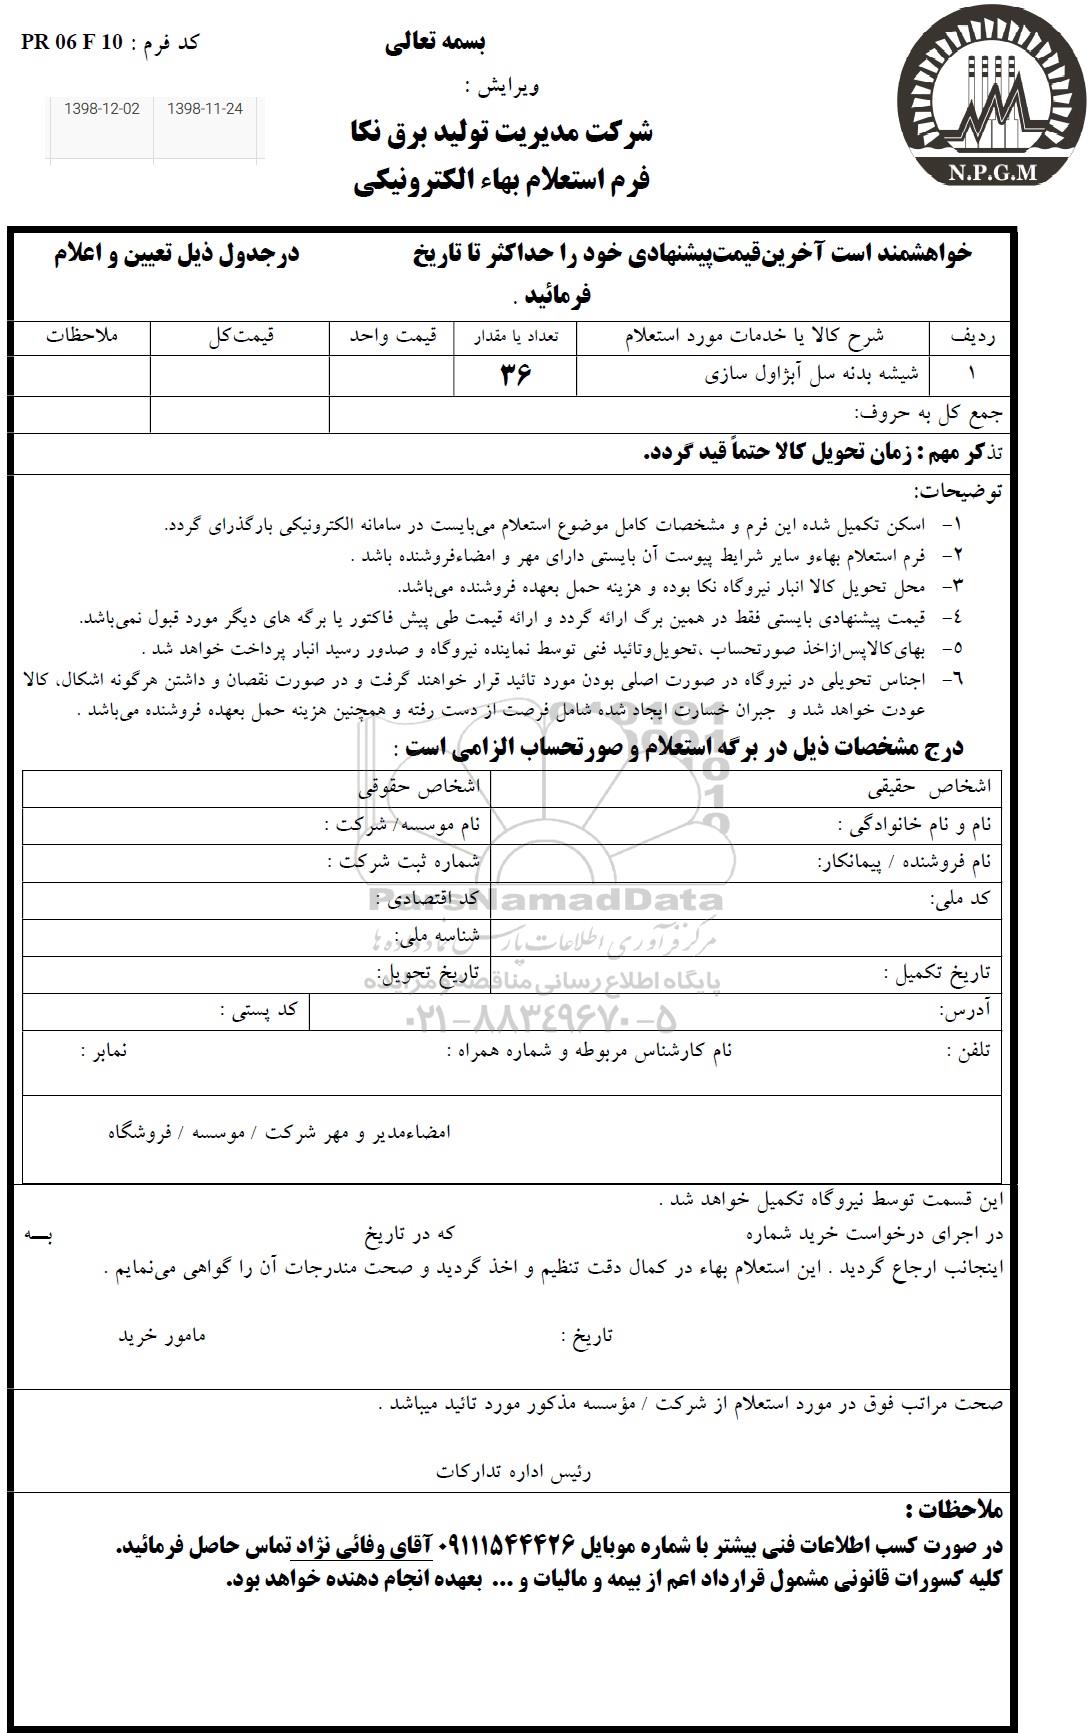 بسمه تعالی
کد فرم : PR 06 F 10
ویرایش :
1398-11-24
1398-12-02
شرکت مدیریت تولید برق نکا
فرم استعلام بهاء الکترونیکی
N.P.G.M
خواهشمند است آخرین‌قیمت‌پیشنهادی خود را حداکثر تا تاریخ درجدول ذیل تعیین و اعلام
فرمائید .
ردیف شرح کالا یا خدمات مورد استعلام تعداد یا مقدار قیمت واحد قیمت‌کل ملاحظات
۱ شیشه بدنه سل آبژاول سازی ۳۶
جمع کل به حروف:
تذکر مهم : زمان تحویل کالا حتماً قید گردد.
توضیحات:
۱- اسکن تکمیل شده این فرم و مشخصات کامل موضوع استعلام می‌بایست در سامانه الکترونیکی بارگذرای گردد.
۲- فرم استعلام بهاءو سایر شرایط پیوست آن بایستی دارای مهر و امضاءفروشنده باشد .
۳- محل تحویل کالا انبار نیروگاه نکا بوده و هزینه حمل بعهده فروشنده می‌باشد.
٤- قیمت پیشنهادی بایستی فقط در همین برگ ارائه گردد و ارائه قیمت طی پیش فاکتور یا برگه های دیگر مورد قبول نمی‌باشد.
٥- بهای‌کالاپس‌ازاخذ صورتحساب ،تحویل‌وتائید فنی توسط نماینده نیروگاه و صدور رسید انبار پرداخت خواهد شد .
٦- اجناس تحویلی در نیروگاه در صورت اصلی بودن مورد تائید قرار خواهند گرفت و در صورت نقصان و داشتن هرگونه اشکال، کالا
عودت خواهد شد و جبران خسارت ایجاد شده شامل فرصت از دست رفته و همچنین هزینه حمل بعهده فروشنده می‌باشد .
درج مشخصات ذیل در برگه استعلام و صورتحساب الزامی است :
اشخاص حقیقی اشخاص حقوقی
نام و نام خانوادگی : نام موسسه/ شرکت :
نام فروشنده / پیمانکار: شماره ثبت شرکت :
کد ملی: کد اقتصادی :
ParsNamadData
شناسه ملی:
مرکز فرآوری اطلاعات پارس نماد داده ها
تاریخ تکمیل : تاریخ تحویل:
پایگاه اطلاع رسانی مناقصه و مزایده
آدرس: کد پستی :
۰۲۱-۸۸۳۴۹۶۷۰-۵
تلفن : نام کارشناس مربوطه و شماره همراه : نمابر :
امضاءمدیر و مهر شرکت / موسسه / فروشگاه
این قسمت توسط نیروگاه تکمیل خواهد شد .
در اجرای درخواست خرید شماره که در تاریخ بـــه
اینجانب ارجاع گردید . این استعلام بهاء در کمال دقت تنظیم و اخذ گردید و صحت مندرجات آن را گواهی می‌نمایم .
تاریخ : مامور خرید
صحت مراتب فوق در مورد استعلام از شرکت / مؤسسه مذکور مورد تائید میباشد .
رئیس اداره تدارکات
ملاحظات :
در صورت کسب اطلاعات فنی بیشتر با شماره موبایل ۰۹۱۱۱۵۴۴۴۲۶ آقای وفائی نژاد تماس حاصل فرمائید.
کلیه کسورات قانونی مشمول قرارداد اعم از بیمه و مالیات و ... بعهده انجام دهنده خواهد بود.